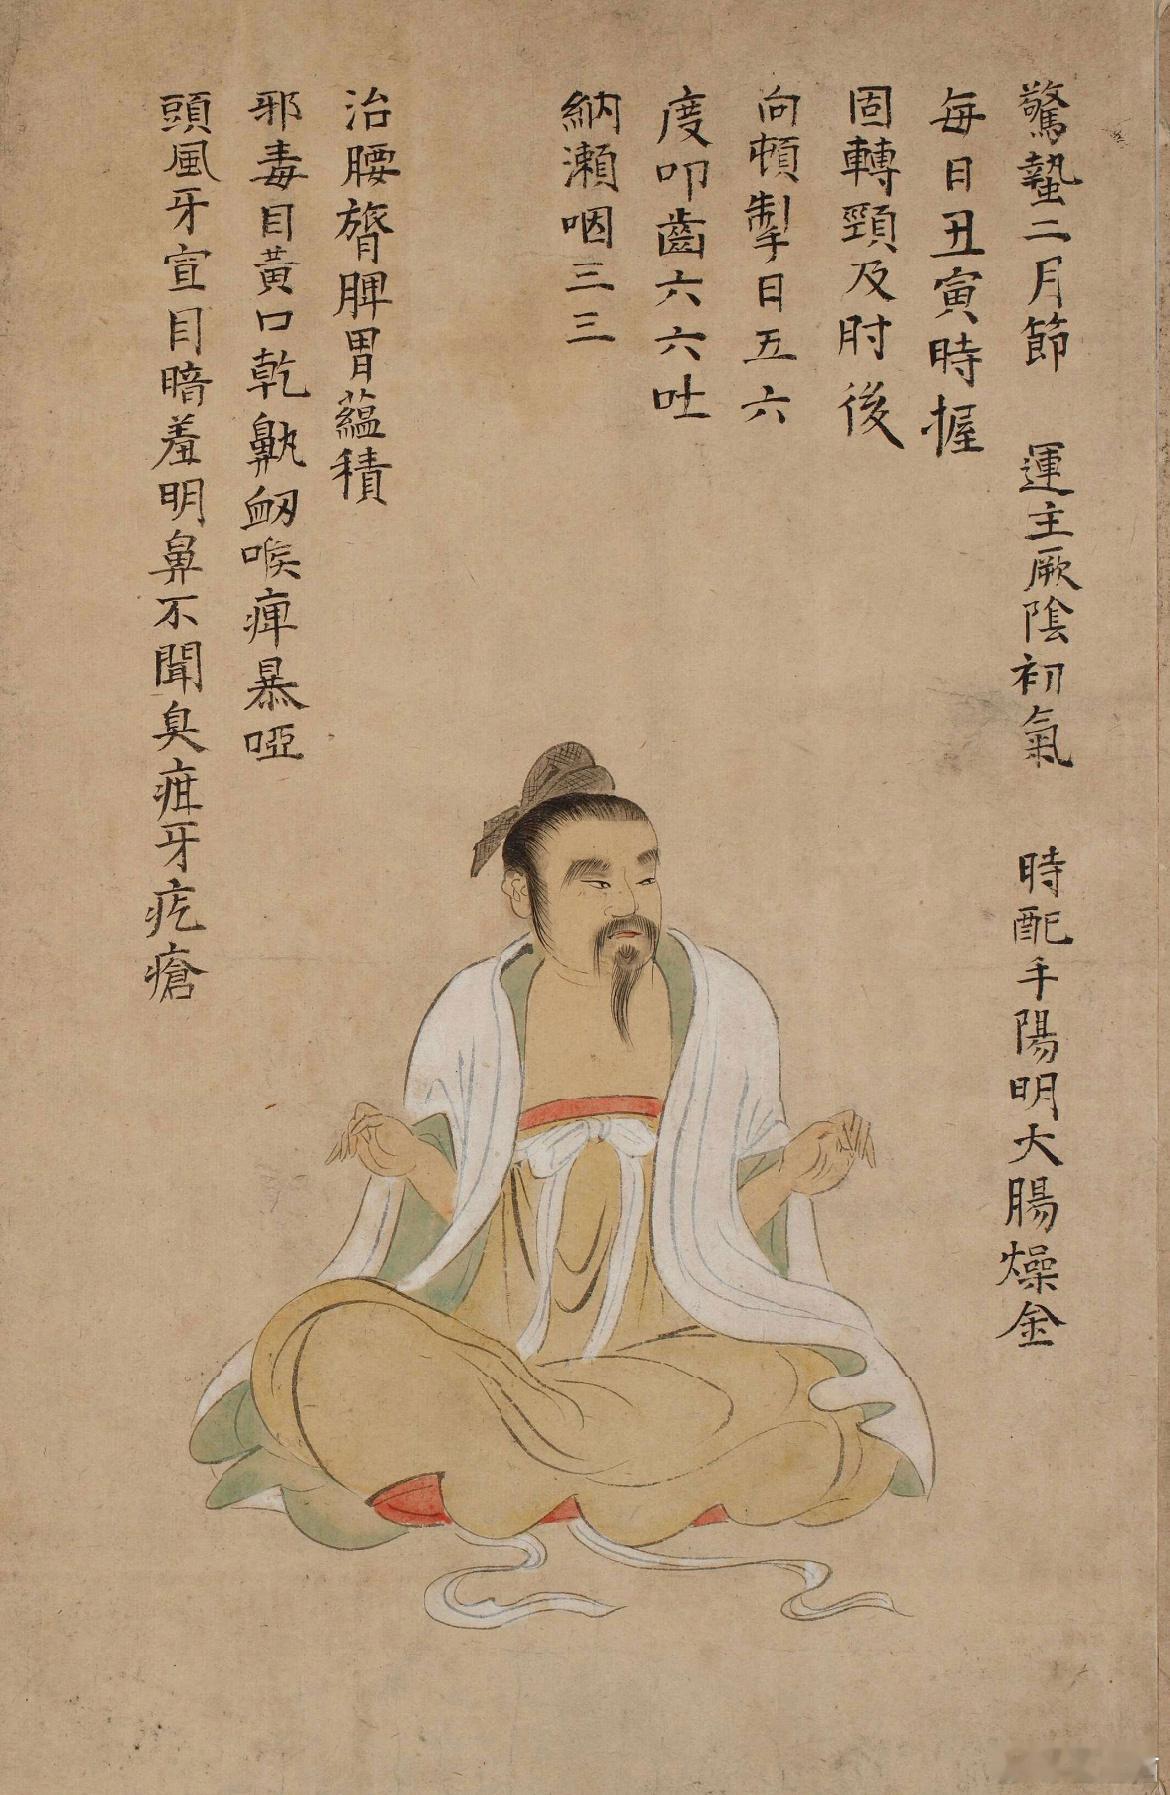 驚蟄二月節　運主厥陰初氣　時配手陽明大腸燥金
每日丑寅時握
固轉頸及肘後
向頓掣日五六
度叩齒六六吐
納瀨咽三三
治腰膂脾胃蘊積
邪毒目黃口乾鼽衂喉痺暴啞
頭風牙宣目暗羞明鼻不聞臭疳牙疙瘡